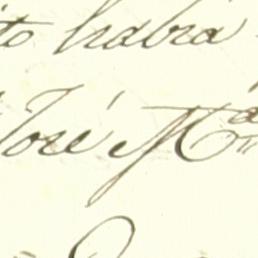 to habia
José Ma